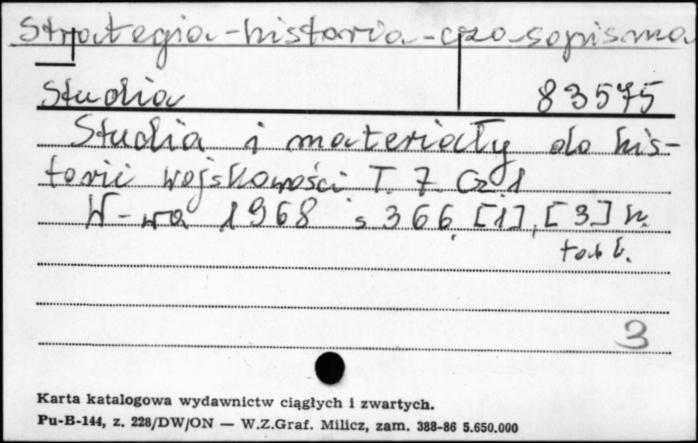 Strategia - historia - czasopisma
Studia 83575
Studia i materiały do his-
torii wojskowości T. 7. Cz 1
W-wa 1968 s 366, [1], [3] k.
tabl.
3
Karta katalogowa wydawnictw ciągłych i zwartych.
Pu-B-144, z. 228/DW/ON — W.Z.Graf. Milicz, zam. 388-86 5.650.000